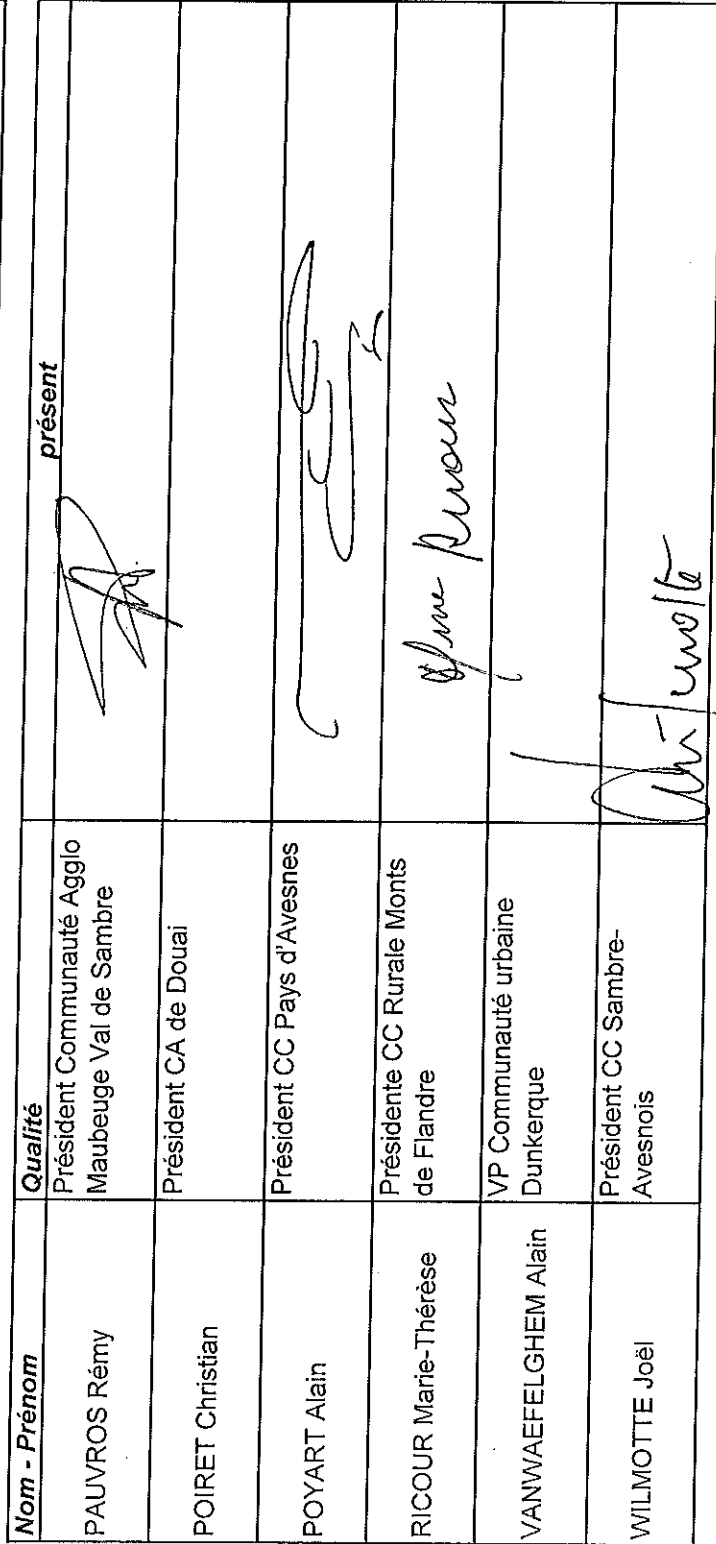 Nom - Prénom
Qualité
présent
PAUVROS Rémy
Président Communauté Agglo
Maubeuge Val de Sambre
POIRET Christian
Président CA de Douai
POYART Alain
Président CC Pays d'Avesnes
RICOUR Marie-Thérèse
Présidente CC Rurale Monts
de Flandre
VANWAEFELGHEM Alain
VP Communauté urbaine
Dunkerque
WILMOTTE Joël
Président CC Sambre-
Avesnois